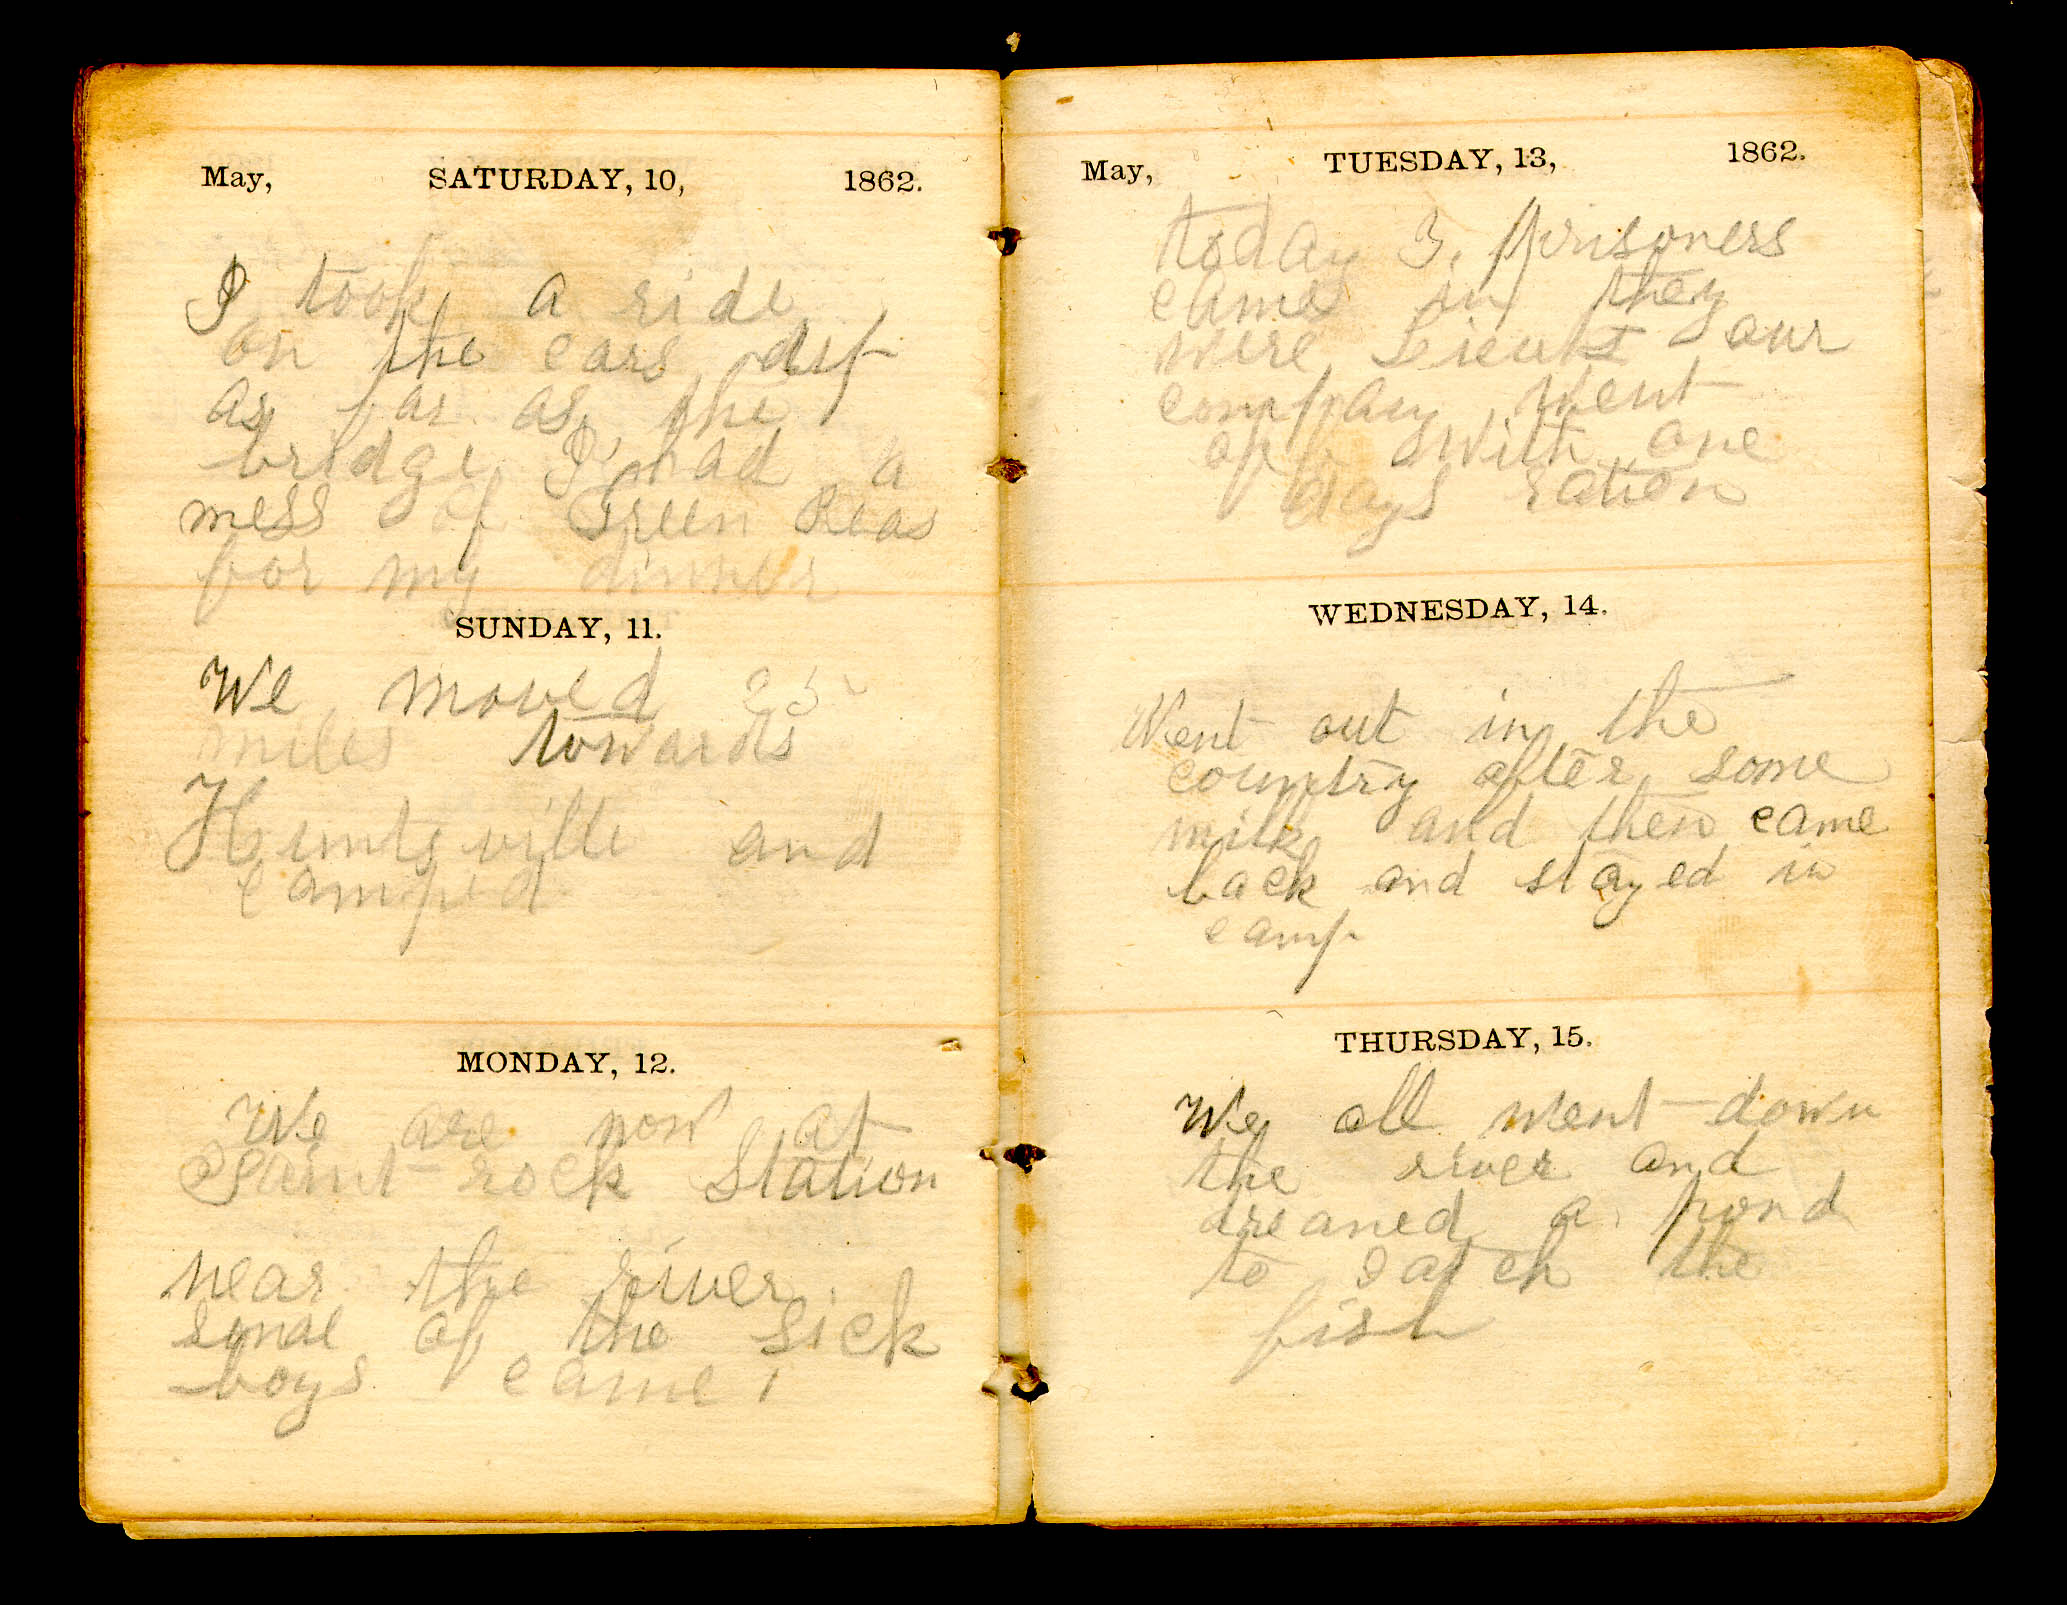 May, SATURDAY, 10, 1862.
I took a ride
on the cars
as far as the
bridge I had a
mess of Green Peas
for my dinner
SUNDAY, 11.
We moved 25
miles towards
Huntsville and
camped
MONDAY, 12.
We are now at
Paint rock Station
near the river
some of the sick
boys came
May, TUESDAY, 13, 1862.
today 3. prisoners
came in they
wire Lieuts our
company went
off with one
days ration
WEDNESDAY, 14.
Went out in the
country after some
milk and then came
back and stayed in
camp
THURSDAY, 15.
We all went down
the river and
dreaned a pond
to catch the
fish